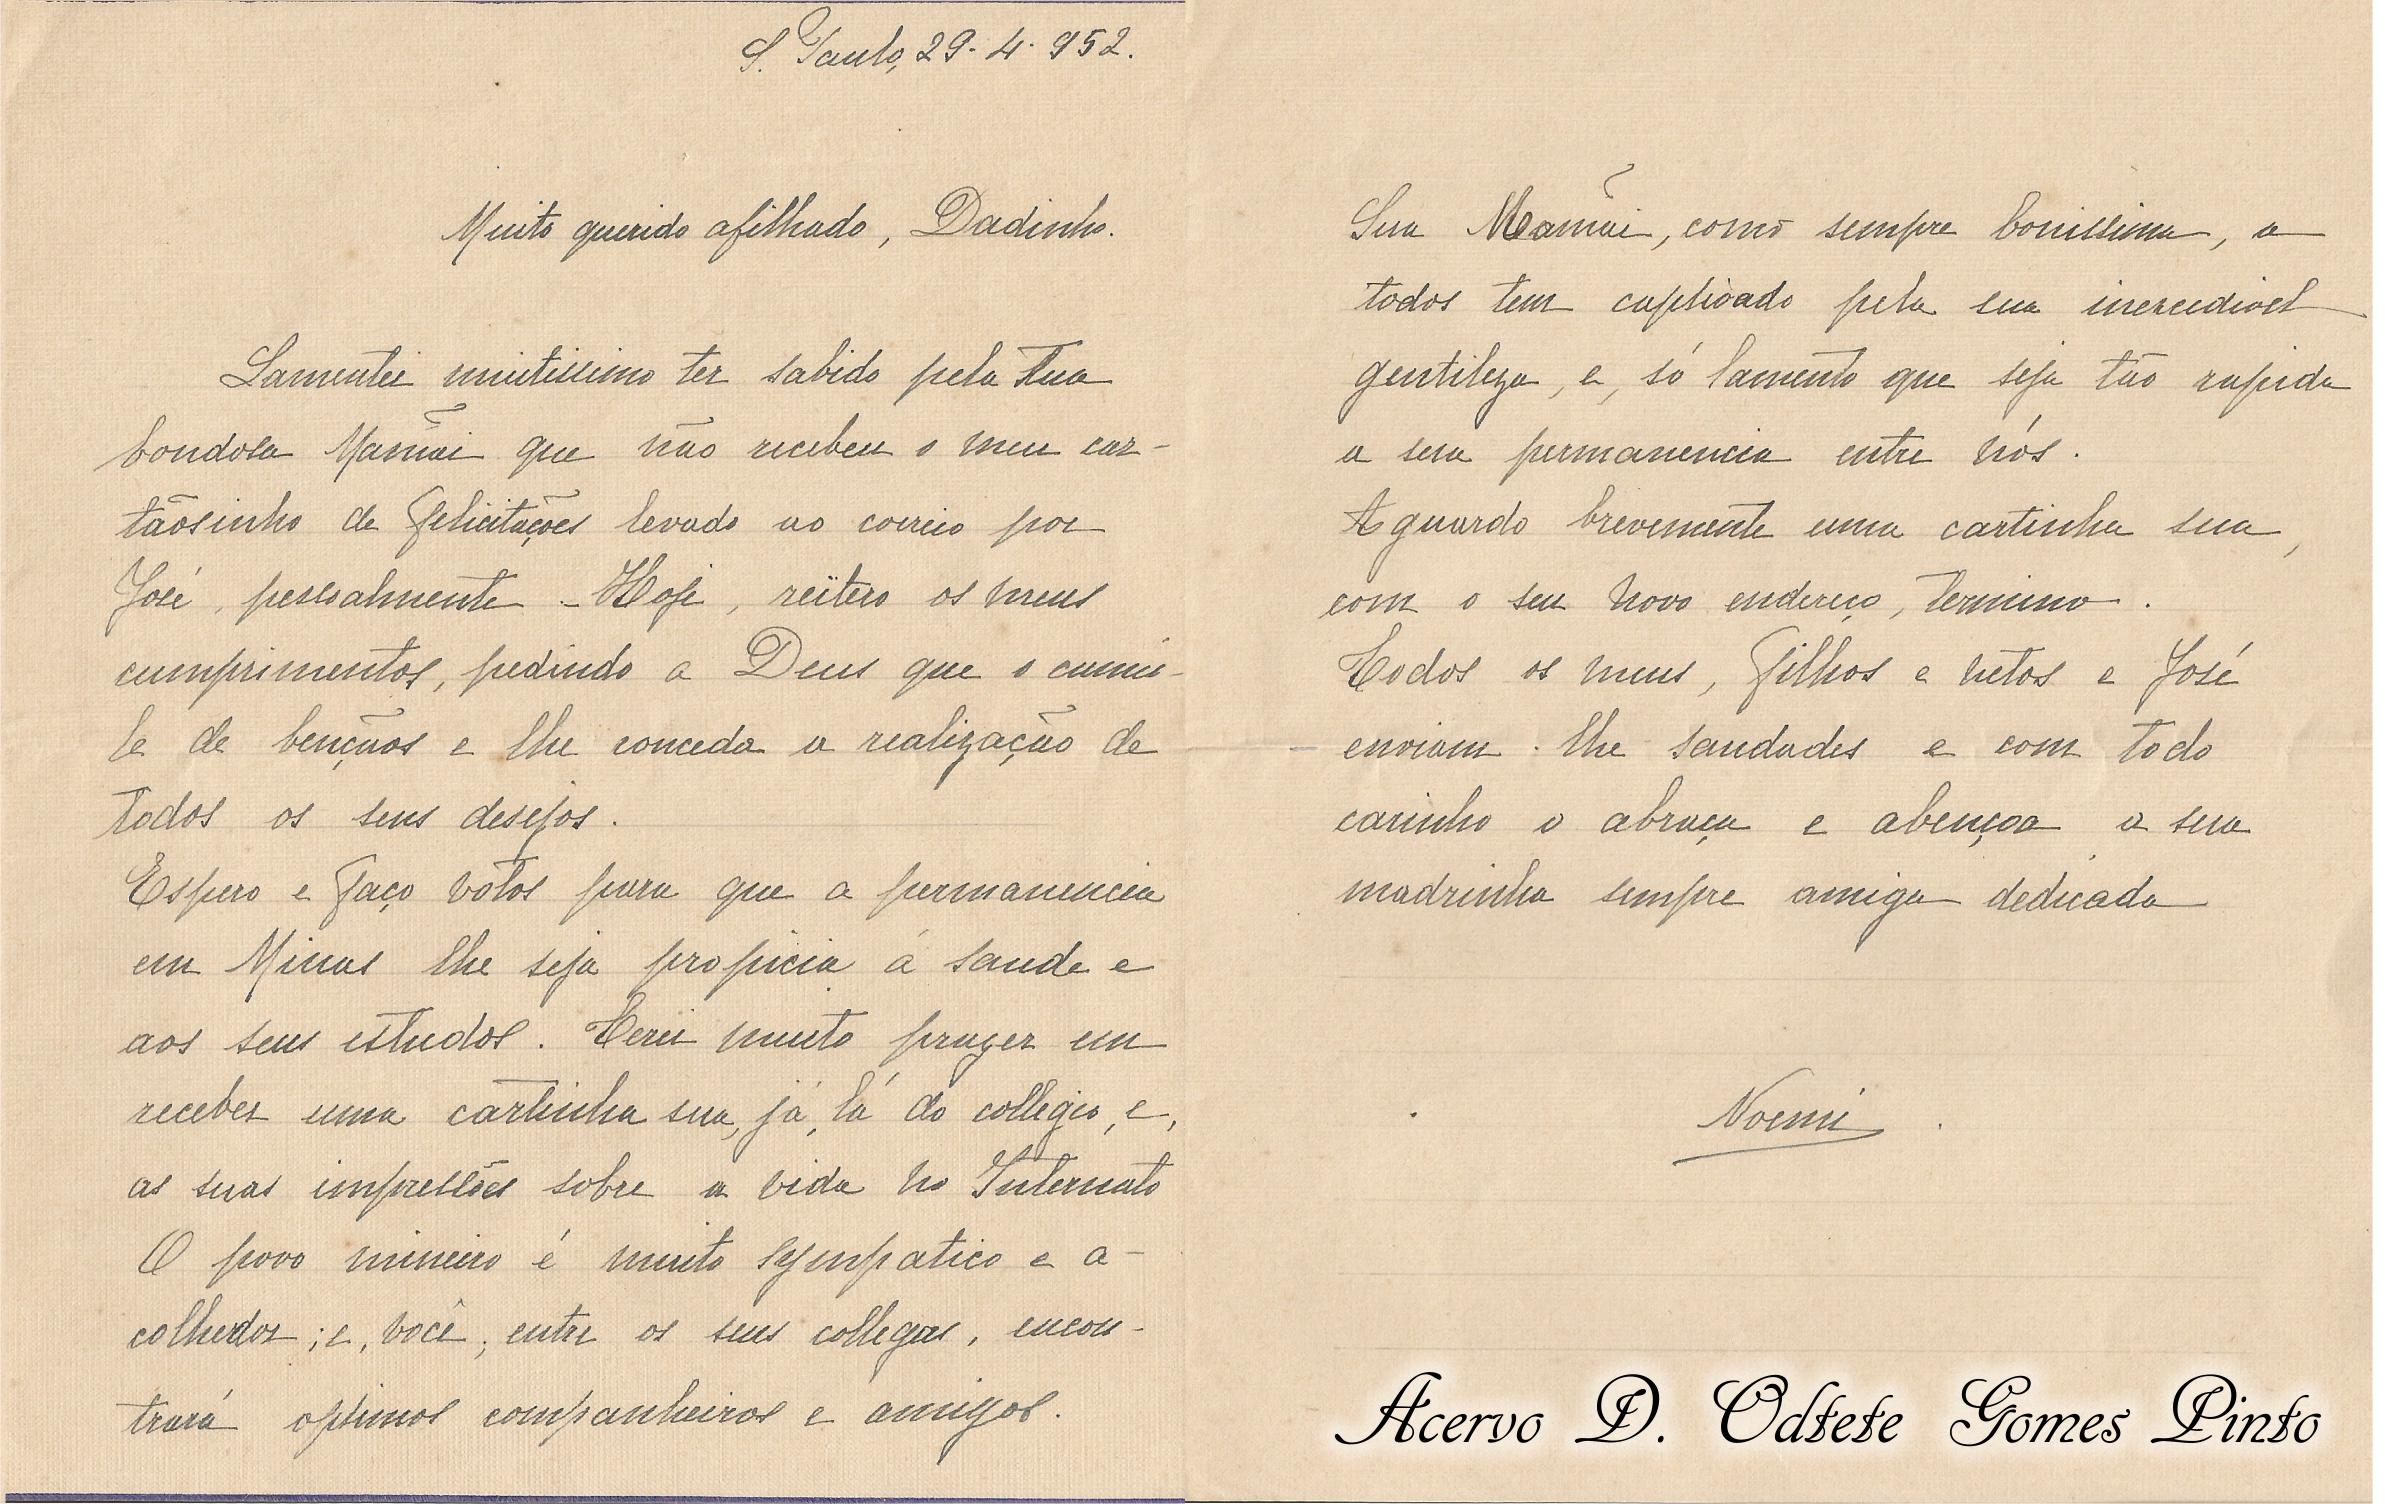 S. Paulo, 29-4-952.
Muito querido afilhado, Dadinho.
Lamentei muitissimo ter sabido pela tua
bondosa Mamãi que não recebeu o meu car-
tãosinho de felicitações levado ao correio por
José, pessoalmente - Hoje, reïtero os meus
cumprimentos, pedindo a Deus que o cumu-
le de bençãos e lhe conceda a realização de
todos os seus desejos.
Espero e faço votos para que a permanencia
em Minas lhe seja propicia á saude e
aos seus estudos. Terei muito prazer em
receber uma cartinha sua, já, lá do collegio, e,
as suas impressões sobre a vida no Internato
O povo mineiro é muito sympatico e a-
colhedor; e, você, entre os seus collegas, encon-
trará optimos companheiros e amigos.
Sua Mamãi, como sempre bonissima, a
todos tem captivado pela sua inexcedivel
gentileza, e, só lamento que seja tão rapida
a sua permanencia entre nós.
Aguardo brevemente uma cartinha sua,
com o seu novo endereço, termino.
Todos os meus, filhos e netos e José
enviam-lhe saudades e com todo
carinho o abraça e abençoa a sua
madrinha sempre amiga dedicada
Noemi
Acervo D. Odtete Gomes Pinto